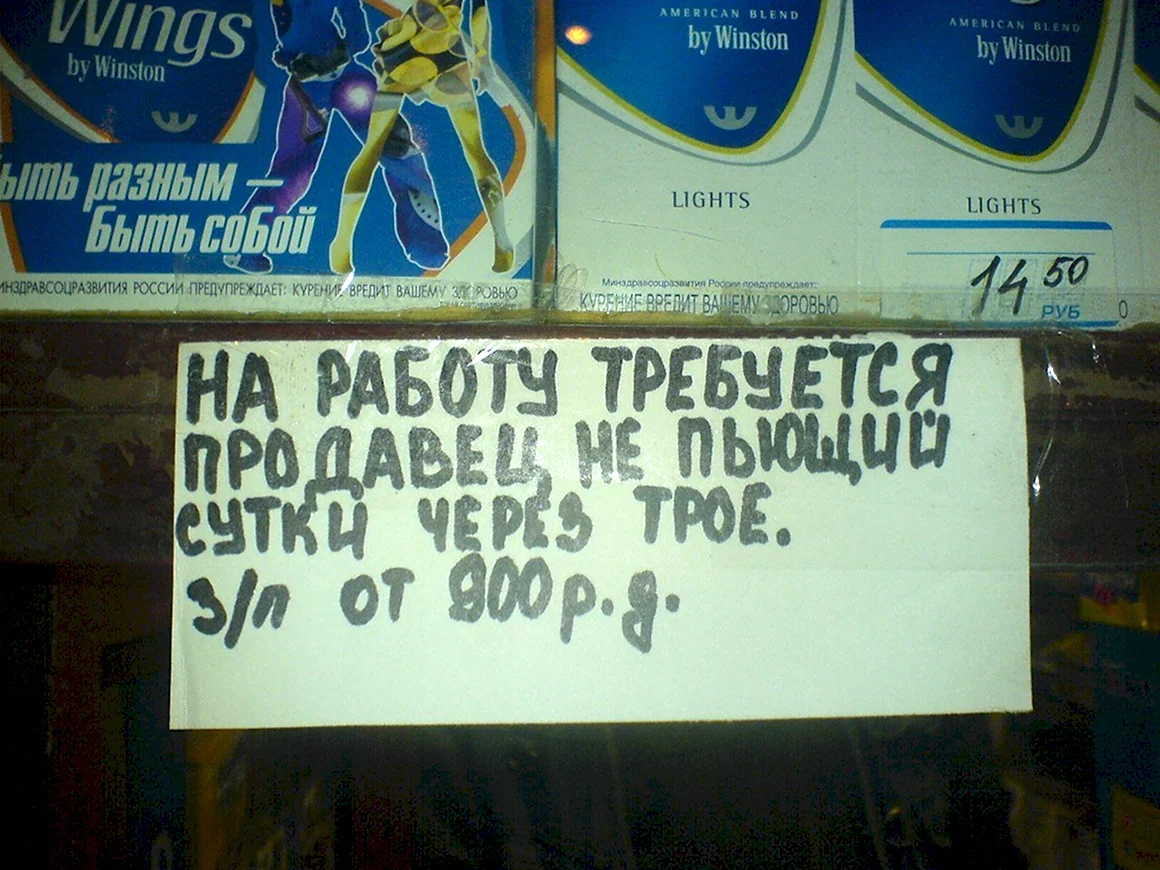 Wings
by Winston
ыть разным —
Быть собой
ИНЗДРАВСОЦРАЗВИТИЯ РОССИИ ПРЕДУПРЕЖДАЕТ: КУРЕНИЕ ВРЕДИТ ВАШЕМУ ЗДОРОВЬЮ
AMERICAN BLEND
by Winston
LIGHTS
Минздравсоцразвития России предупреждает:
КУРЕНИЕ ВРЕДИТ ВАШЕМУ ЗДОРОВЬЮ
AMERICAN BLEND
by Winston
LIGHTS
14 50
РУБ
НА РАБОТУ ТРЕБУЕТСЯ
ПРОДАВЕЦ НЕ ПЬЮЩИЙ
СУТКИ ЧЕРЕЗ ТРОЕ.
З/П ОТ 900 р.д.